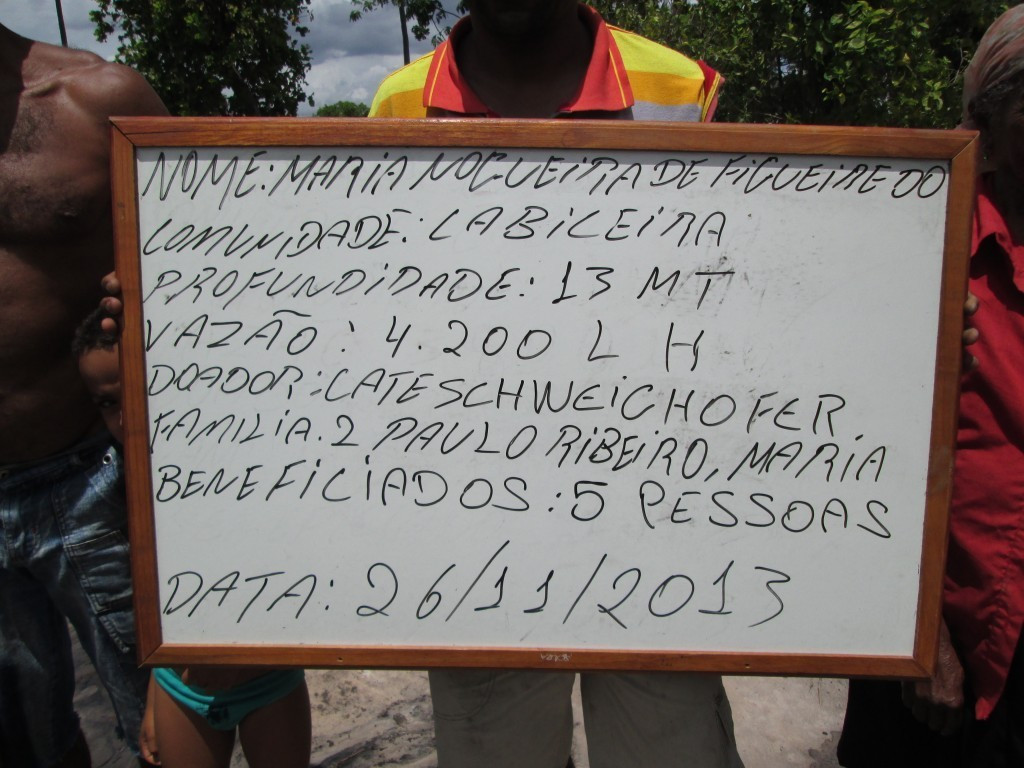 NOME: MARIA NOGUEIRA DE FIGUEIREDO
COMUNIDADE: CABICEIRA
PROFUNDIDADE: 13 MT
VAZÃO: 4.200 L H
DOADOR: CATE SCHWEIGHOFER
FAMILIA. 2 PAULO RIBEIRO, MARIA
BENEFICIADOS: 5 PESSOAS
DATA: 26/11/2013